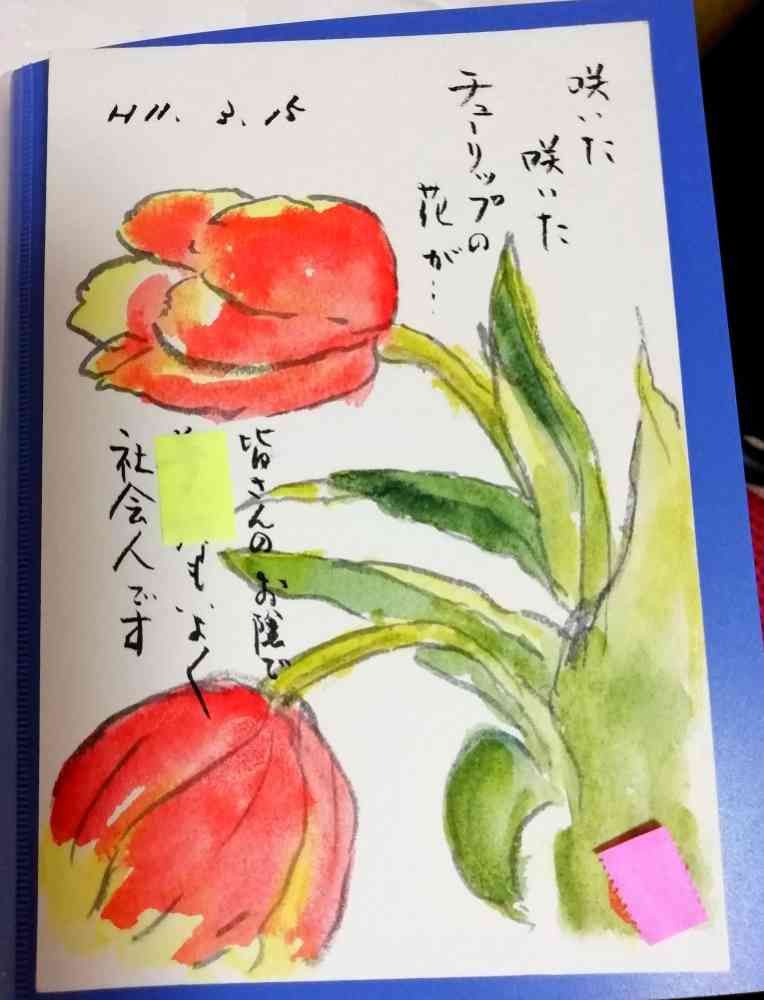 咲いた
咲いた
チューリップの
花が…
H11. 3. 15
皆さんのお陰で
もいよ〱
社会人です